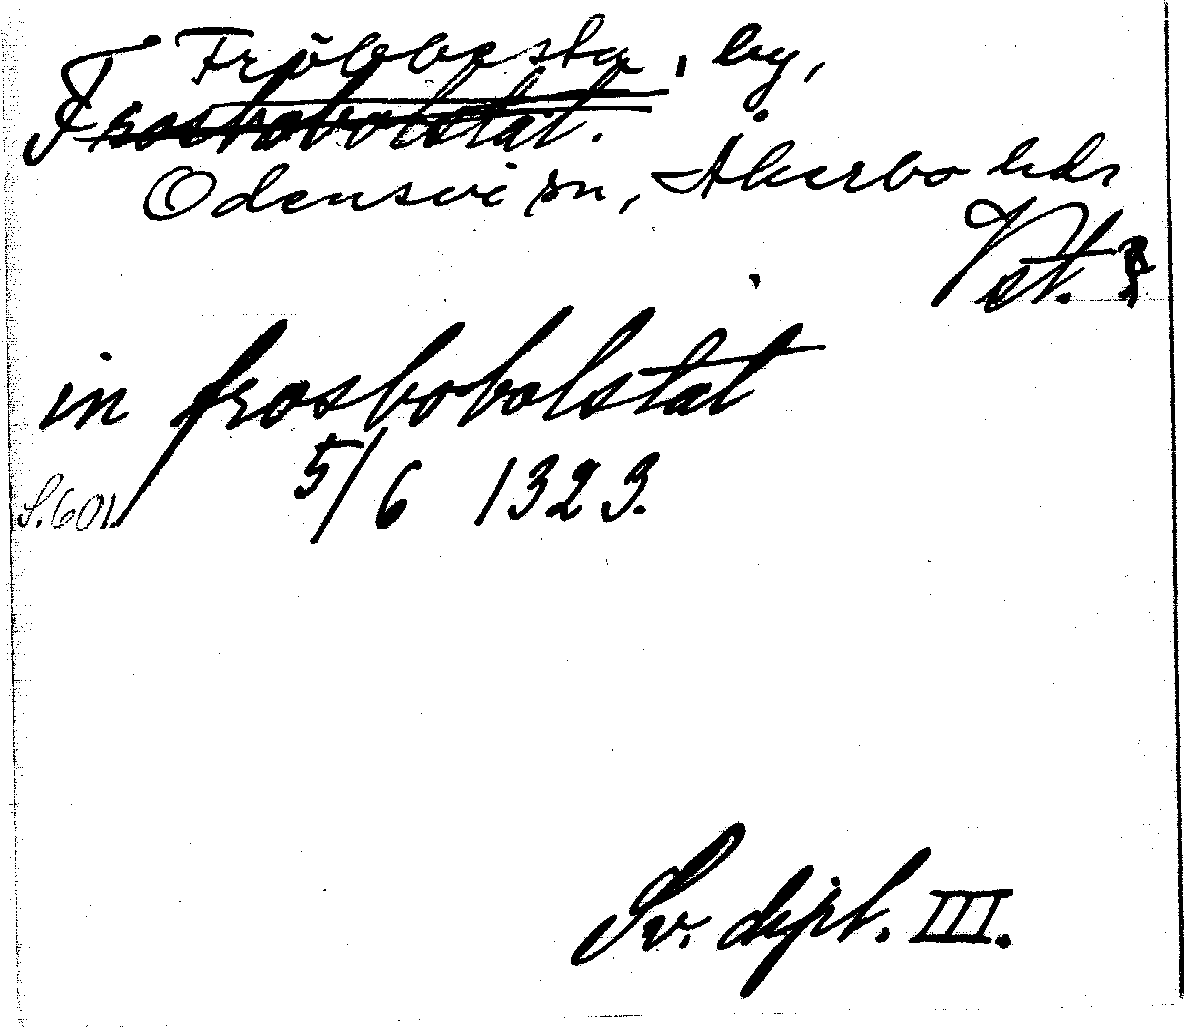 Fröbbesta, by,
Frosbobolstat.
Odensvi sn, Åkerbo hdr
Vst.
in frosbobolstat
5/6 1323.
S. 601
Sv. dipl. III.